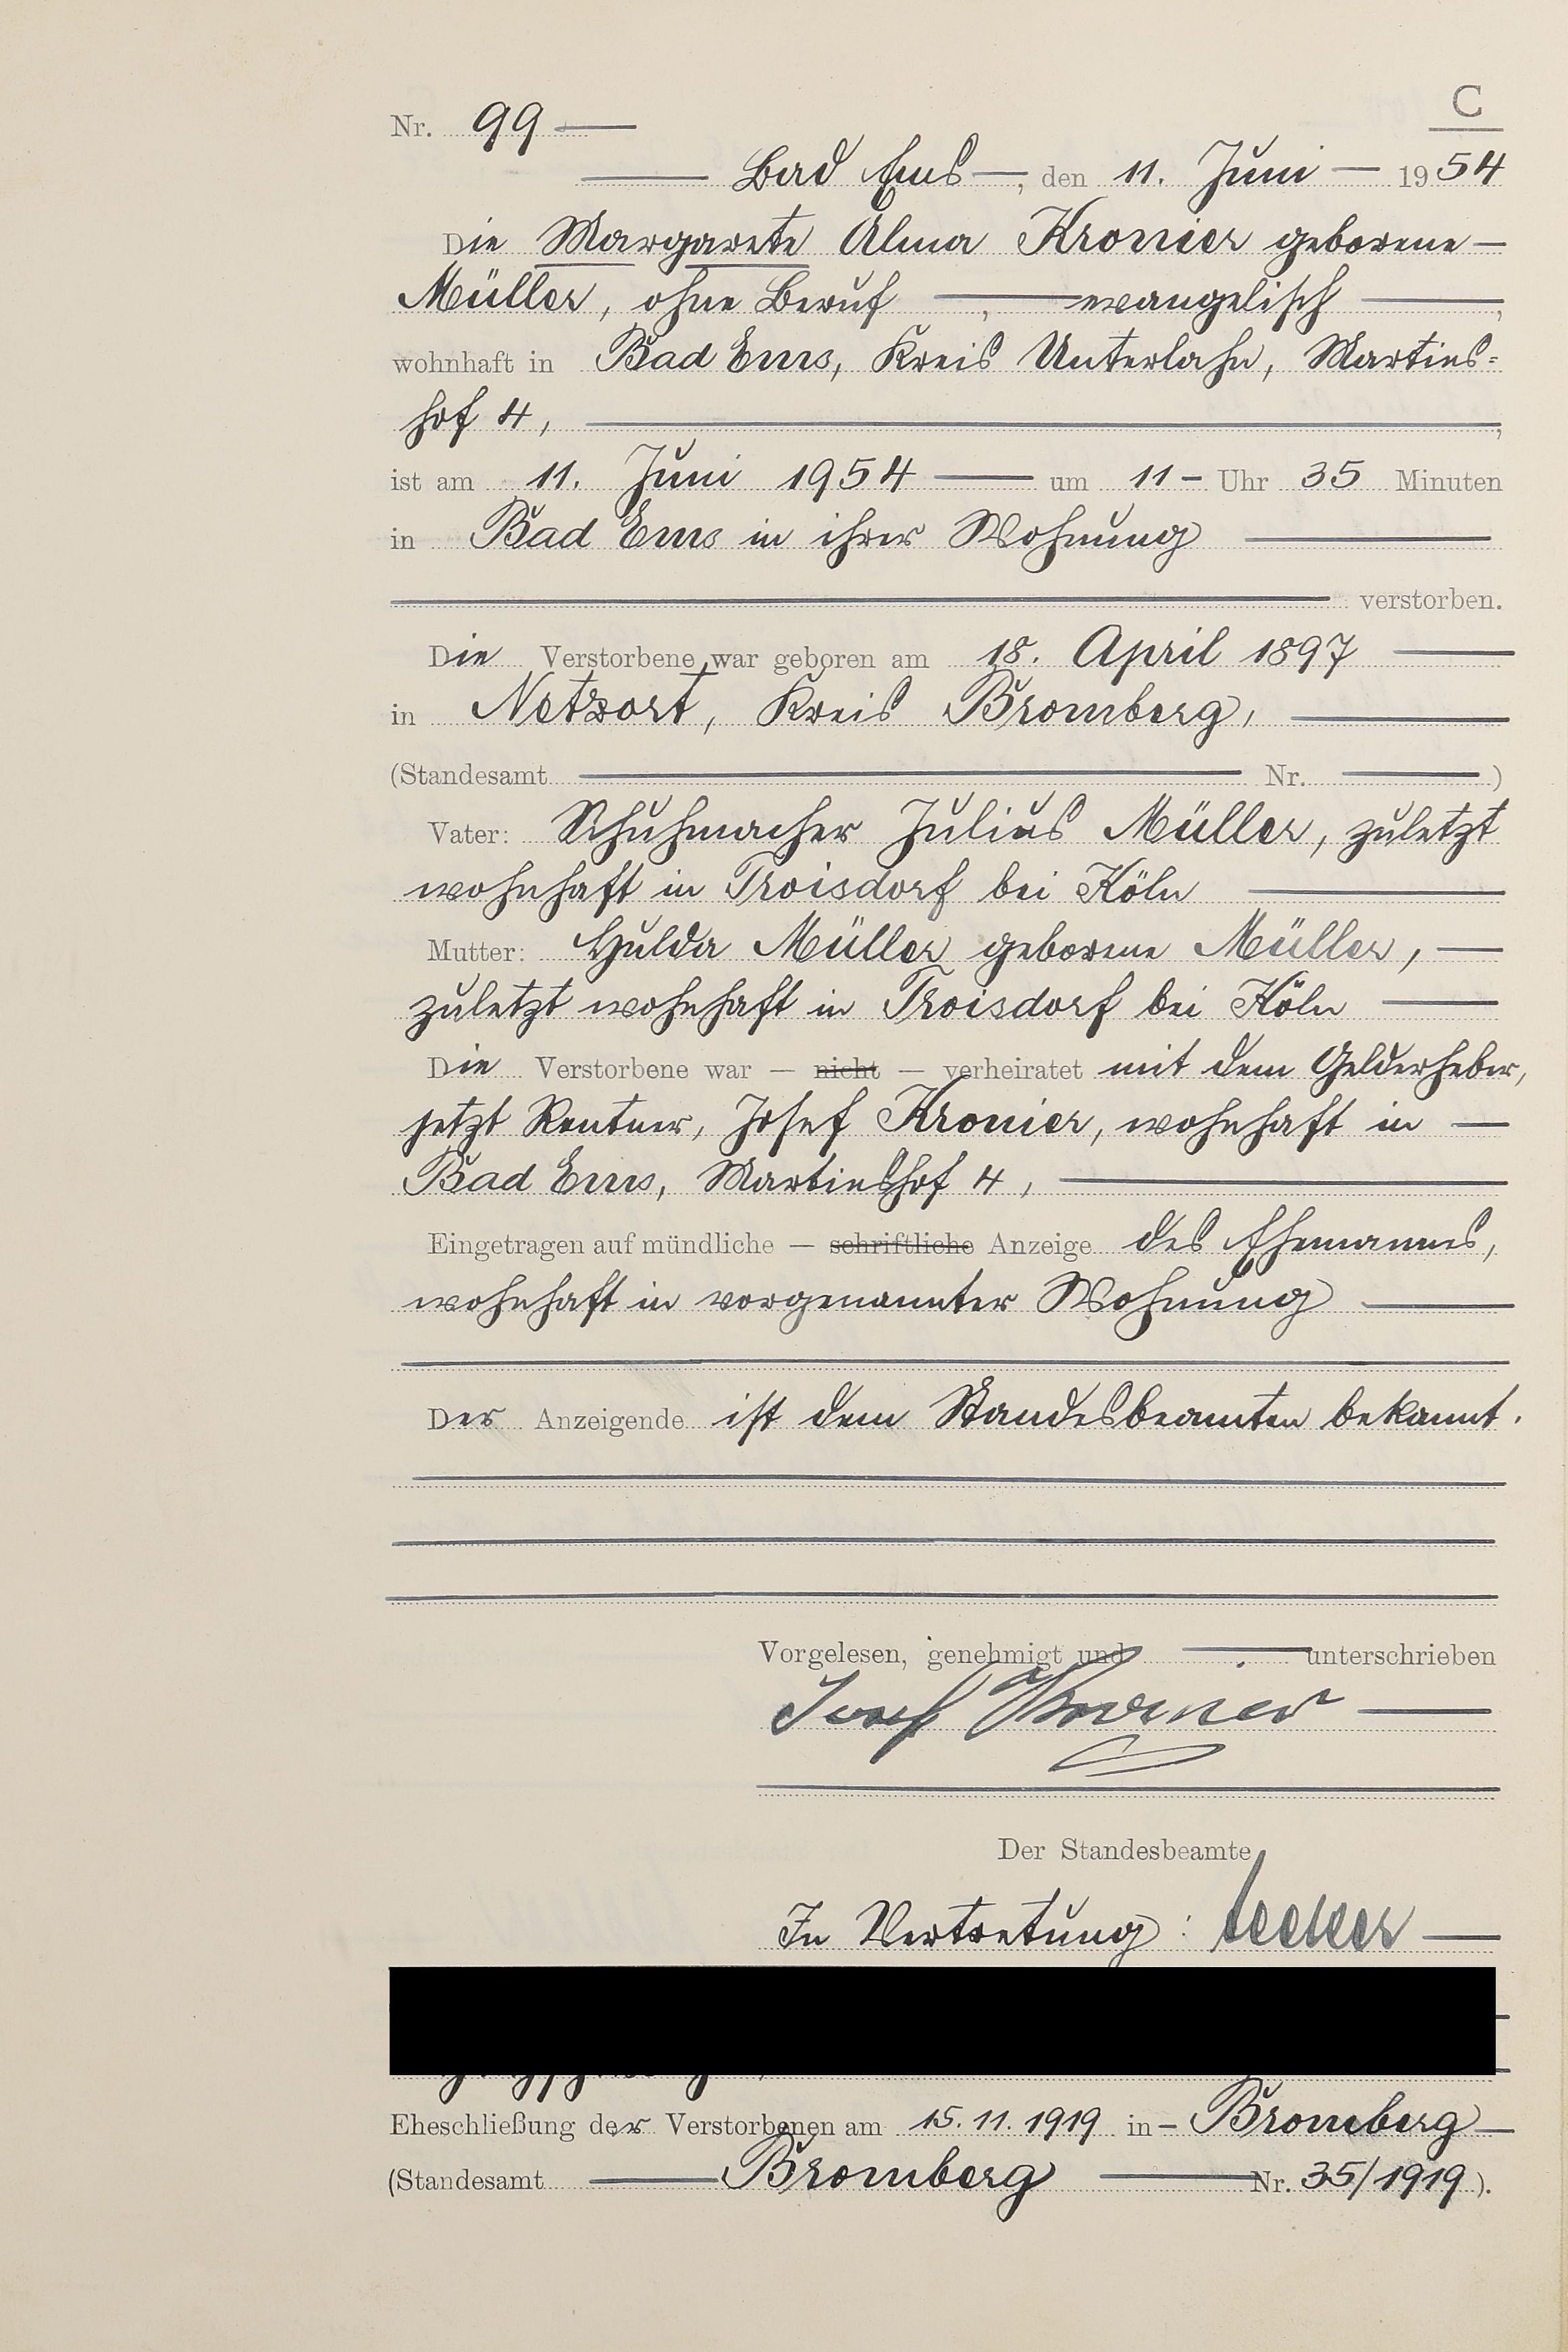 C
Nr. 99
Bad Ems, den 11. Juni 1954
Die Margarete Alma Kronier geborene
Müller, ohne Beruf, evangelisch,
wohnhaft in Bad Ems, Kreis Unterlahn, Martins=
hof 4,
ist am 11. Juni 1954 um 11 Uhr 35 Minuten
in Bad Ems in ihrer Wohnung
verstorben.
Die Verstorbene war geboren am 18. April 1897
in Netzort, Kreis Bromberg,
(Standesamt Nr. )
Vater: Schuhmacher Julius Müller, zuletzt
wohnhaft in Troisdorf bei Köln
Mutter: Hulda Müller geborene Müller,
zuletzt wohnhaft in Troisdorf bei Köln
Die Verstorbene war — nicht — verheiratet mit dem Gelderheber,
jetzt Rentner, Josef Kronier, wohnhaft in
Bad Ems, Martinshof 4,
Eingetragen auf mündliche — schriftliche Anzeige des Ehemannes,
wohnhaft in vorgenannter Wohnung
Der Anzeigende ist dem Standesbeamten bekannt.
Vorgelesen, genehmigt und unterschrieben
Josef Kronier
Der Standesbeamte
In Vertretung:
Eheschließung der Verstorbenen am 15.11.1919 in Bromberg
(Standesamt Bromberg Nr. 35/1919).